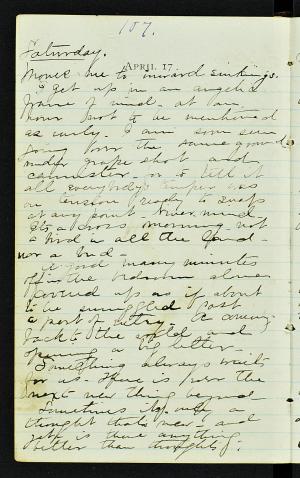 107.
Saturday.
APRIL 17.
Moves me to inward
I get up in an angelic
frame of mind - at an
hour not to be mentioned
as early. I am soon seen
going over the same ground
under grape shot and
cannister - or to tell it
all everybody's temper was
on tension ready to snap
at any point - Never mind
Its a cross morning - not
a bird in all the land -
nor a bud -
A good many minutes
off in the
covered up as if about
to be smuggled past
a port of entry
back to the world and
or to better -
Something always waits
for us - There is ever the
next new thing beyond
Sometimes its only a
thought that's new - and
yet is there anything
better than thoughts?